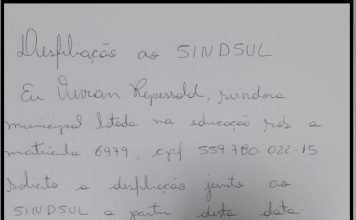 Desfiliação ao SINDSUL
Eu Vivian Repessold, servidora
municipal lotada na educação sob a
matrícula 6979, cpf 559780-022-15
solicito a desfiliação junto ao
SINDSUL a partir desta data